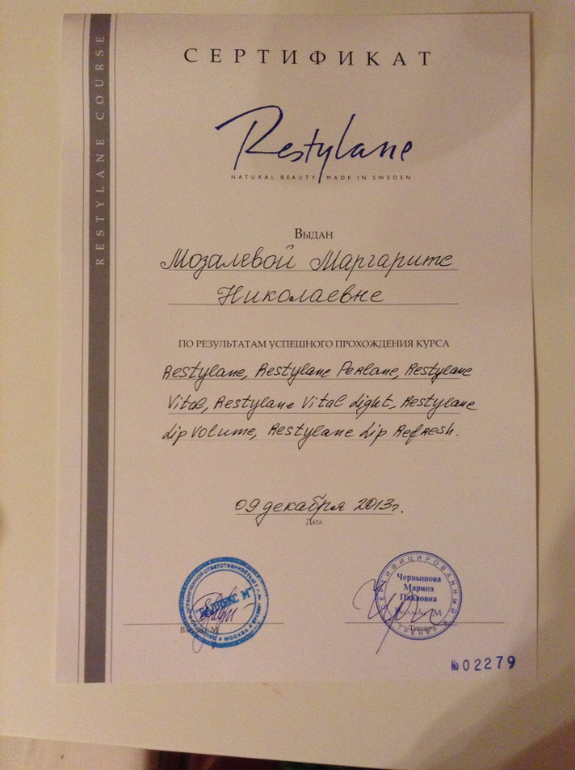 RESTYLANE COURSE
СЕРТИФИКАТ
Restylane
NATURAL BEAUTY MADE IN SWEDEN
Выдан
Мозалевой Маргарите
Николаевне
ПО РЕЗУЛЬТАТАМ УСПЕШНОГО ПРОХОЖДЕНИЯ КУРСА
Restylane, Restylane Perlane, Restylane
Vital, Restylane Vital Light, Restylane
Lip Volume, Restylane Lip Refresh.
09 декабря 2013г.
Дата
СЕРТИФИЦИРОВАННЫЙ
Чернышова
Марина
Павловна
МОСКВА
№02279